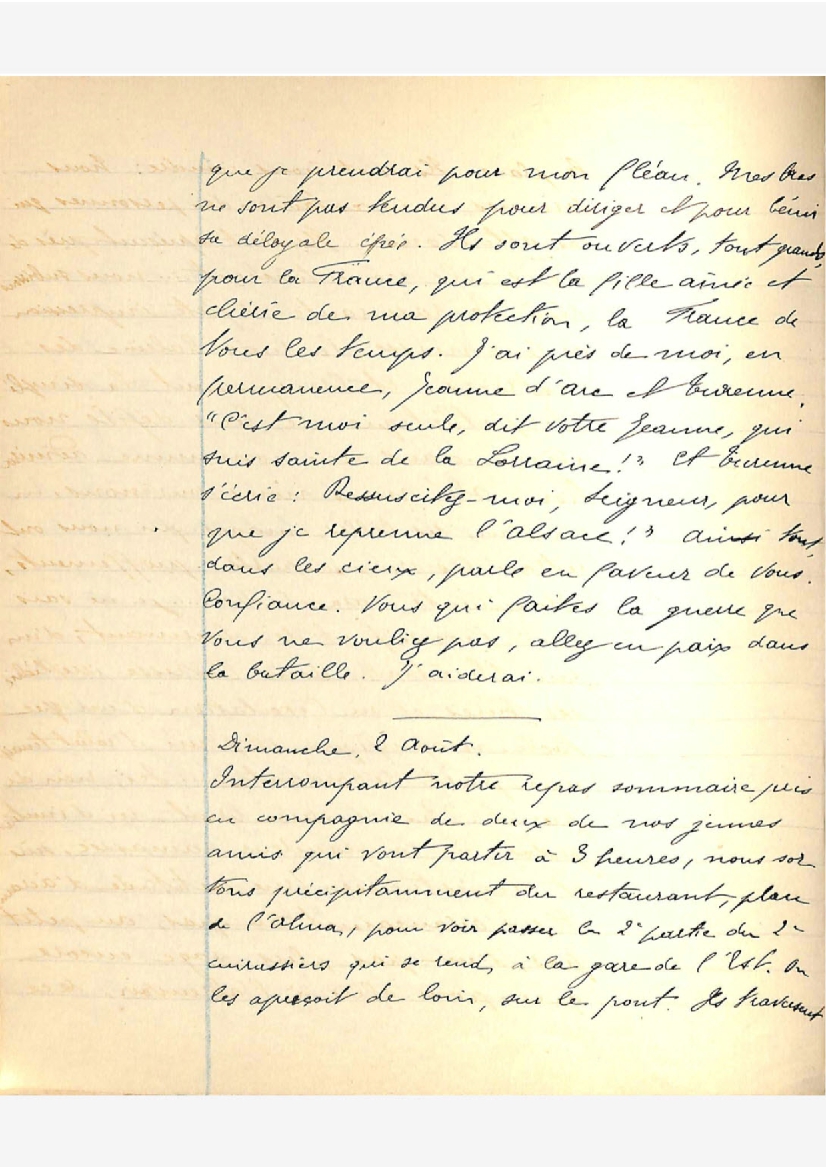 que je prendrai pour mon fléau. Mes bras
ne sont pas tendus pour diriger et pour bénir
sa déloyale épée. Ils sont ouverts, tout grands,
pour la France, qui est la fille aînée et
chérie de ma protection, la France de
tous les temps. J'ai près de moi, en
permanence, Jeanne d'arc et Turenne.
"C'est moi seule, dit votre Jeanne, qui
suis sainte de la Lorraine!" Et Turenne
s'écrie : Ressuscitez-moi, Seigneur, pour
que je reprenne l'alsace!" ainsi tout,
dans les cieux, parle en faveur de vous.
Confiance. Vous qui faites la guerre que
vous ne vouliez pas, allez en paix dans
la bataille. J'aiderai.
Dimanche, 2 Août.
Interrompant notre repas sommaire pris
en compagnie de deux de nos jeunes
amis qui vont partir à 3 heures, nous sor
tons précipitamment du restaurant, place
de l'alma, pour voir passer la 2e partie du 2e
cuirassiers qui se rend, à la gare de l'Est. On
les aperçoit de loin, sur le pont. Ils traversent